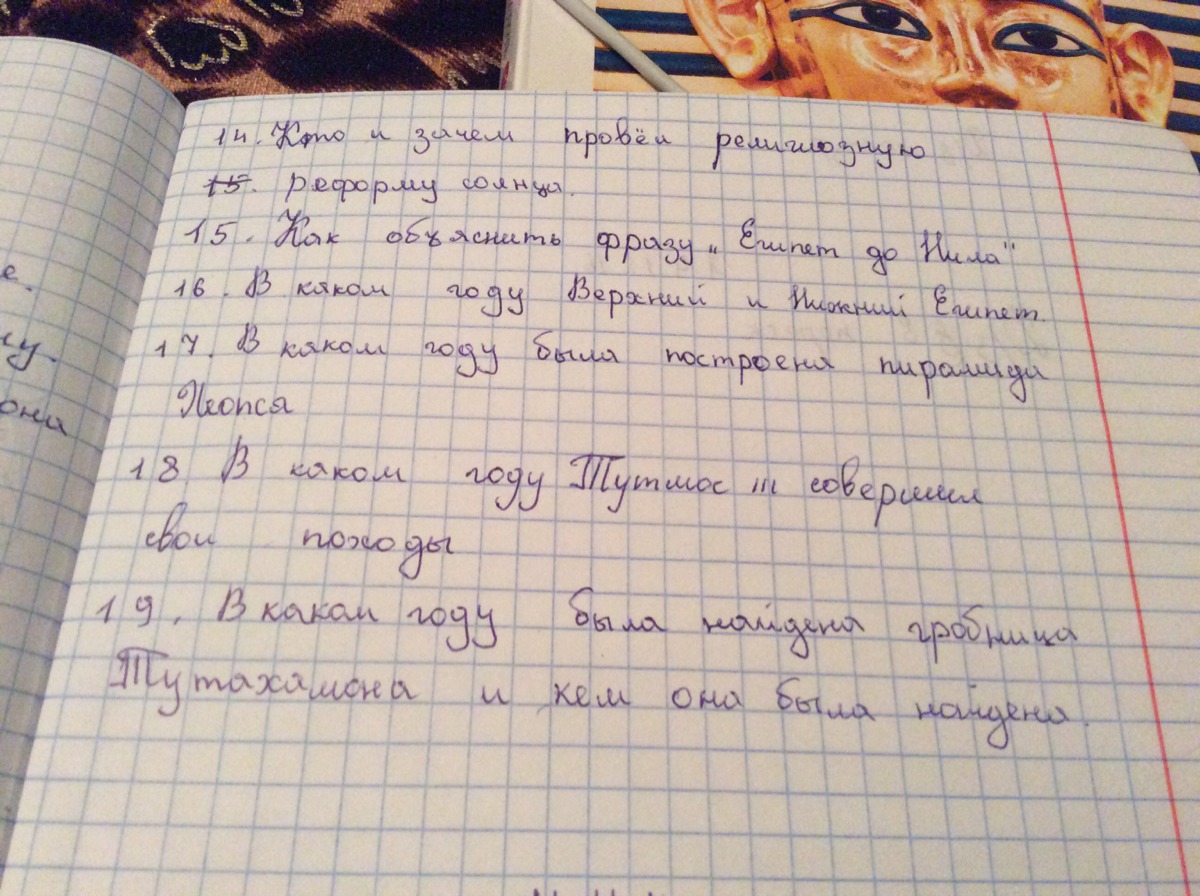 е.
су.
она
14. Кто и зачем провёл религиозную
15. реформу солнца.
15. Как объяснить фразу „Египет до Нила"
16. В каком году Верхний и Нижний Египет.
17. В каком году была построена пирамида
Хеопса
18 В каком году Тутмос III совершил
свои походы
19. В каком году была найдена гробница
Тутахамона и кем она была найдена.